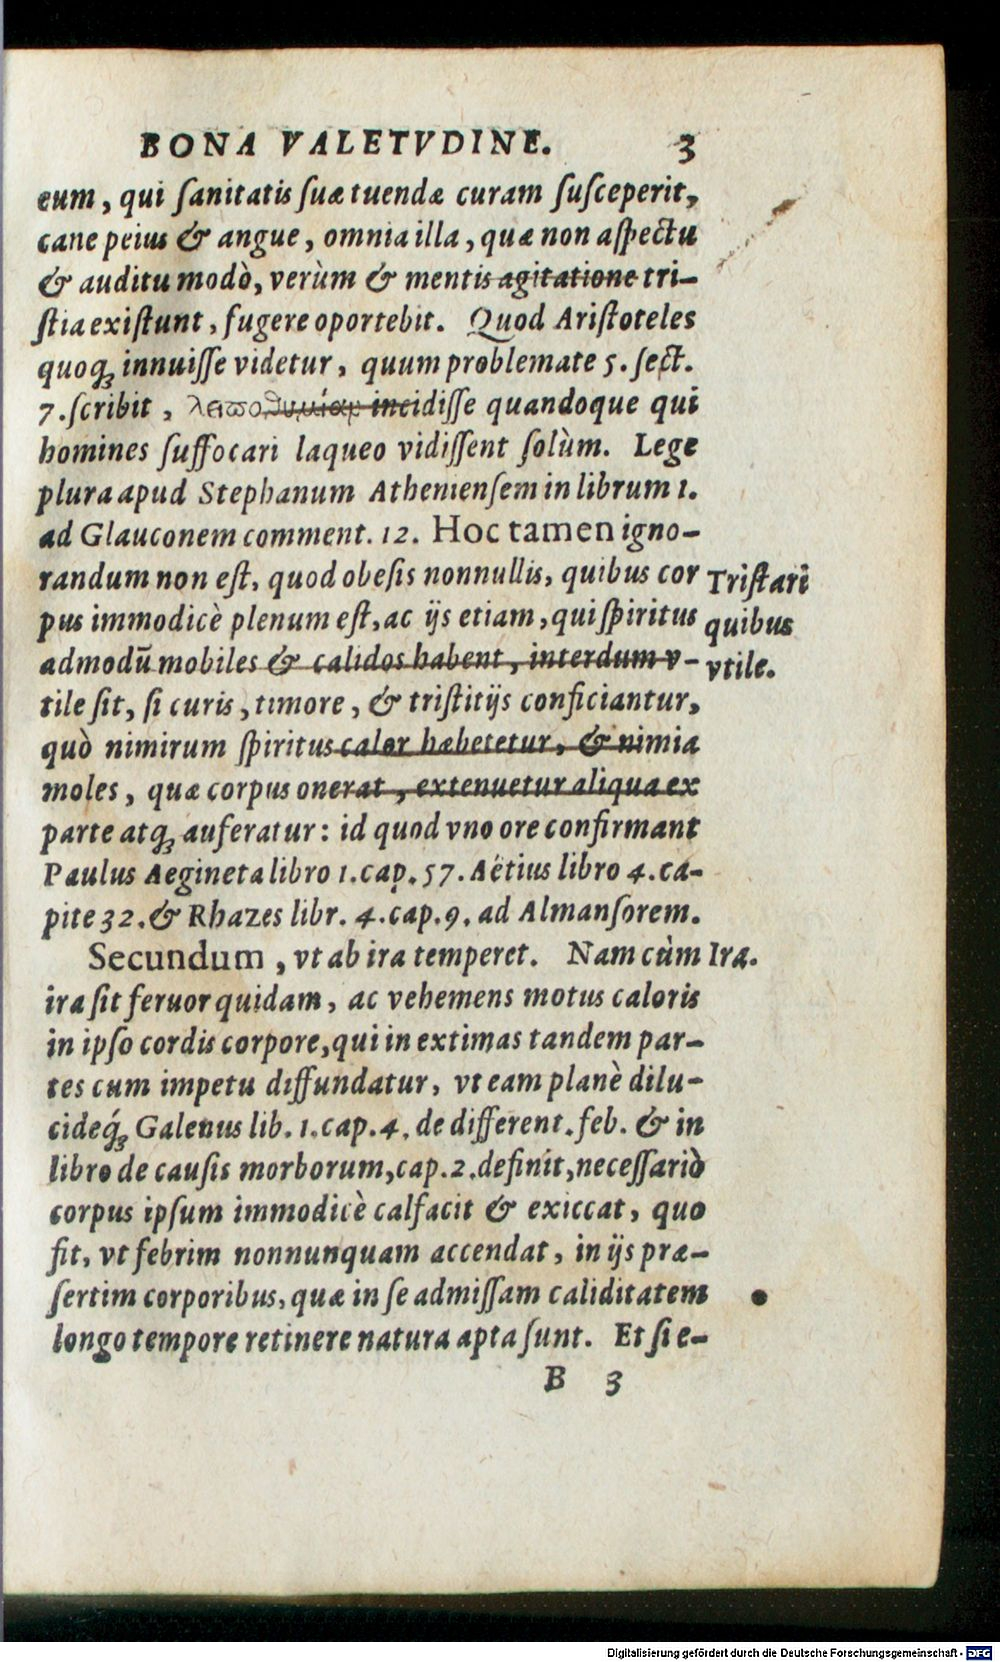 BONA VALETVDINE. 3
eum, qui ſanitatis ſuæ tuendæ curam ſuſceperit,
cane peius & angue, omnia illa, quæ non aſpectu
& auditu modò, verùm & mentis agitatione tri-
ſtia exiſtunt, fugere oportebit. Quod Ariſtoteles
quoq; innuiſſe videtur, quum problemate 5. ſect.
7. ſcribit, λειποθυμίαν incidiſſe quandoque qui
homines ſuffocari laqueo vidiſſent ſolùm. Lege
plura apud Stephanum Athenienſem in librum 1.
ad Glauconem comment. 12. Hoc tamen igno-
randum non eſt, quod obeſis nonnullis, quibus cor
pus immodicè plenum eſt, ac ijs etiam, qui ſpiritus
admodũ mobiles & calidos habent, interdum v-
tile ſit, ſi curis, timore, & triſtitijs conficiantur,
quò nimirum ſpiritus calor hæbetetur, & nimia
moles, quæ corpus onerat, extenuetur aliqua ex
parte atq; auferatur: id quod vno ore confirmant
Paulus Aegineta libro 1. cap. 57. Aëtius libro 4. ca-
pite 32. & Rhazes libr. 4. cap. 9. ad Almanſorem.
Triſtari
quibus
vtile.
Secundum, vt ab ira temperet. Nam cùm
Ira.
ira ſit feruor quidam, ac vehemens motus caloris
in ipſo cordis corpore, qui in extimas tandem par-
tes cum impetu diffundatur, vt eam planè dilu-
cideq́; Galenus lib. 1. cap. 4. de different. feb. & in
libro de cauſis morborum, cap. 2. definit, neceſſariò
corpus ipſum immodicè calfacit & exiccat, quo
fit, vt febrim nonnunquam accendat, in ijs præ-
ſertim corporibus, quæ in ſe admiſſam caliditatem
longo tempore retinere natura apta ſunt. Et ſi e-
B 3
Digitalisierung gefördert durch die Deutsche Forschungsgemeinschaft - DFG